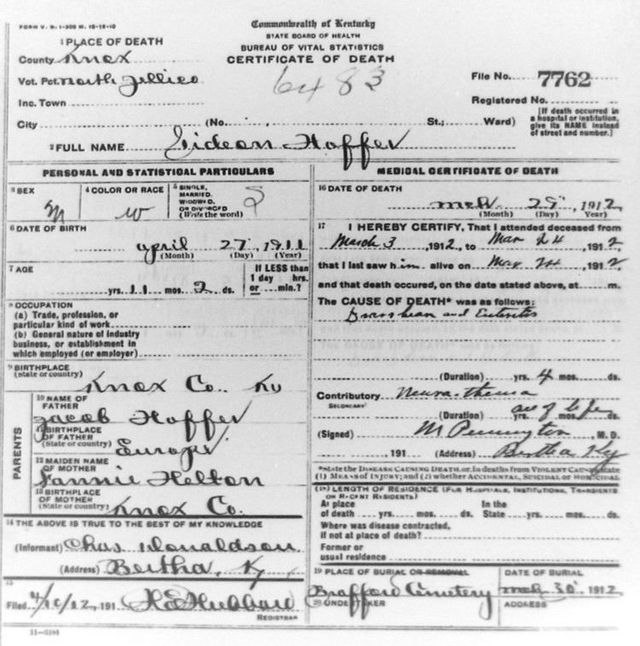 FORM V. S. 1-300 M. 10-15-10
Commonwealth of Kentucky
STATE BOARD OF HEALTH
BUREAU OF VITAL STATISTICS
CERTIFICATE OF DEATH
1 PLACE OF DEATH
County Knox
Vot. Pct. North Jellico
Inc. Town
City (No. St.; Ward)
6483
File No. 7762
Registered No.
[If death occurred in a hospital or institution, give its NAME instead of street and number.]
2 FULL NAME Gideon Hoffer
PERSONAL AND STATISTICAL PARTICULARS
3 SEX M
4 COLOR OR RACE W
5 SINGLE, MARRIED, WIDOWED, OR DIVORCED (Write the word) S
6 DATE OF BIRTH
April 27 1911
(Month) (Day) (Year)
7 AGE
yrs. 11 mos. 2 ds.
If LESS than 1 day hrs. or min.?
8 OCCUPATION
(a) Trade, profession, or
particular kind of work
(b) General nature of industry
business, or establishment in
which employed (or employer)
9 BIRTHPLACE
(State or country)
Knox Co. Ky
PARENTS
10 NAME OF FATHER
Jacob Hoffer
11 BIRTHPLACE OF FATHER (State or country)
Europe
12 MAIDEN NAME OF MOTHER
Fannie Helton
13 BIRTHPLACE OF MOTHER (State or country)
Knox Co.
14 THE ABOVE IS TRUE TO THE BEST OF MY KNOWLEDGE
(Informant) Chas Donaldson
(Address) Bertha, Ky
15
Filed 4/10/12 191 Hubbard
REGISTRAR
11-3184
MEDICAL CERTIFICATE OF DEATH
16 DATE OF DEATH
Mch 29, 1912
(Month) (Day) (Year)
17 I HEREBY CERTIFY, That I attended deceased from
March 3 1912, to Mar 24 1912
that I last saw him alive on Mar 24 1912,
and that death occured, on the date stated above, at m.
The CAUSE OF DEATH* was as follows:
and
(Duration) yrs. 4 mos. ds.
Contributory
SECONDARY
(Duration) yrs. mos. ds.
(Signed) M Pennington, M. D.
191 (Address) Bertha Ky
*State the DISEASE CAUSING DEATH, or, in deaths from VIOLENT CAUSES, state (1) MEANS OF INJURY; and (2) whether ACCIDENTAL, SUICIDAL or HOMICIDAL
18 LENGTH OF RESIDENCE (FOR HOSPITALS, INSTITUTIONS, TRANSIENTS OR RECENT RESIDENTS)
At place of death yrs. mos. ds. In the State yrs. mos. ds.
Where was disease contracted,
if not at place of death?
Former or
usual residence
19 PLACE OF BURIAL OR REMOVAL
Brafford Cemetery
DATE OF BURIAL
Mch 30 1912
20 UNDERTAKER
ADDRESS